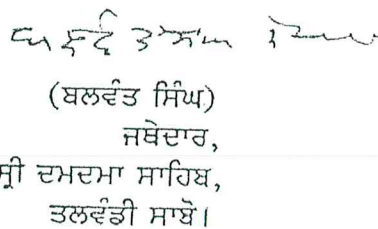 (ਬਲਵੰਤ ਸਿੰਘ)
ਜਥੇਦਾਰ,
ਸ੍ਰੀ ਦਮਦਮਾ ਸਾਹਿਬ,
ਤਲਵੰਡੀ ਸਾਬੋ।